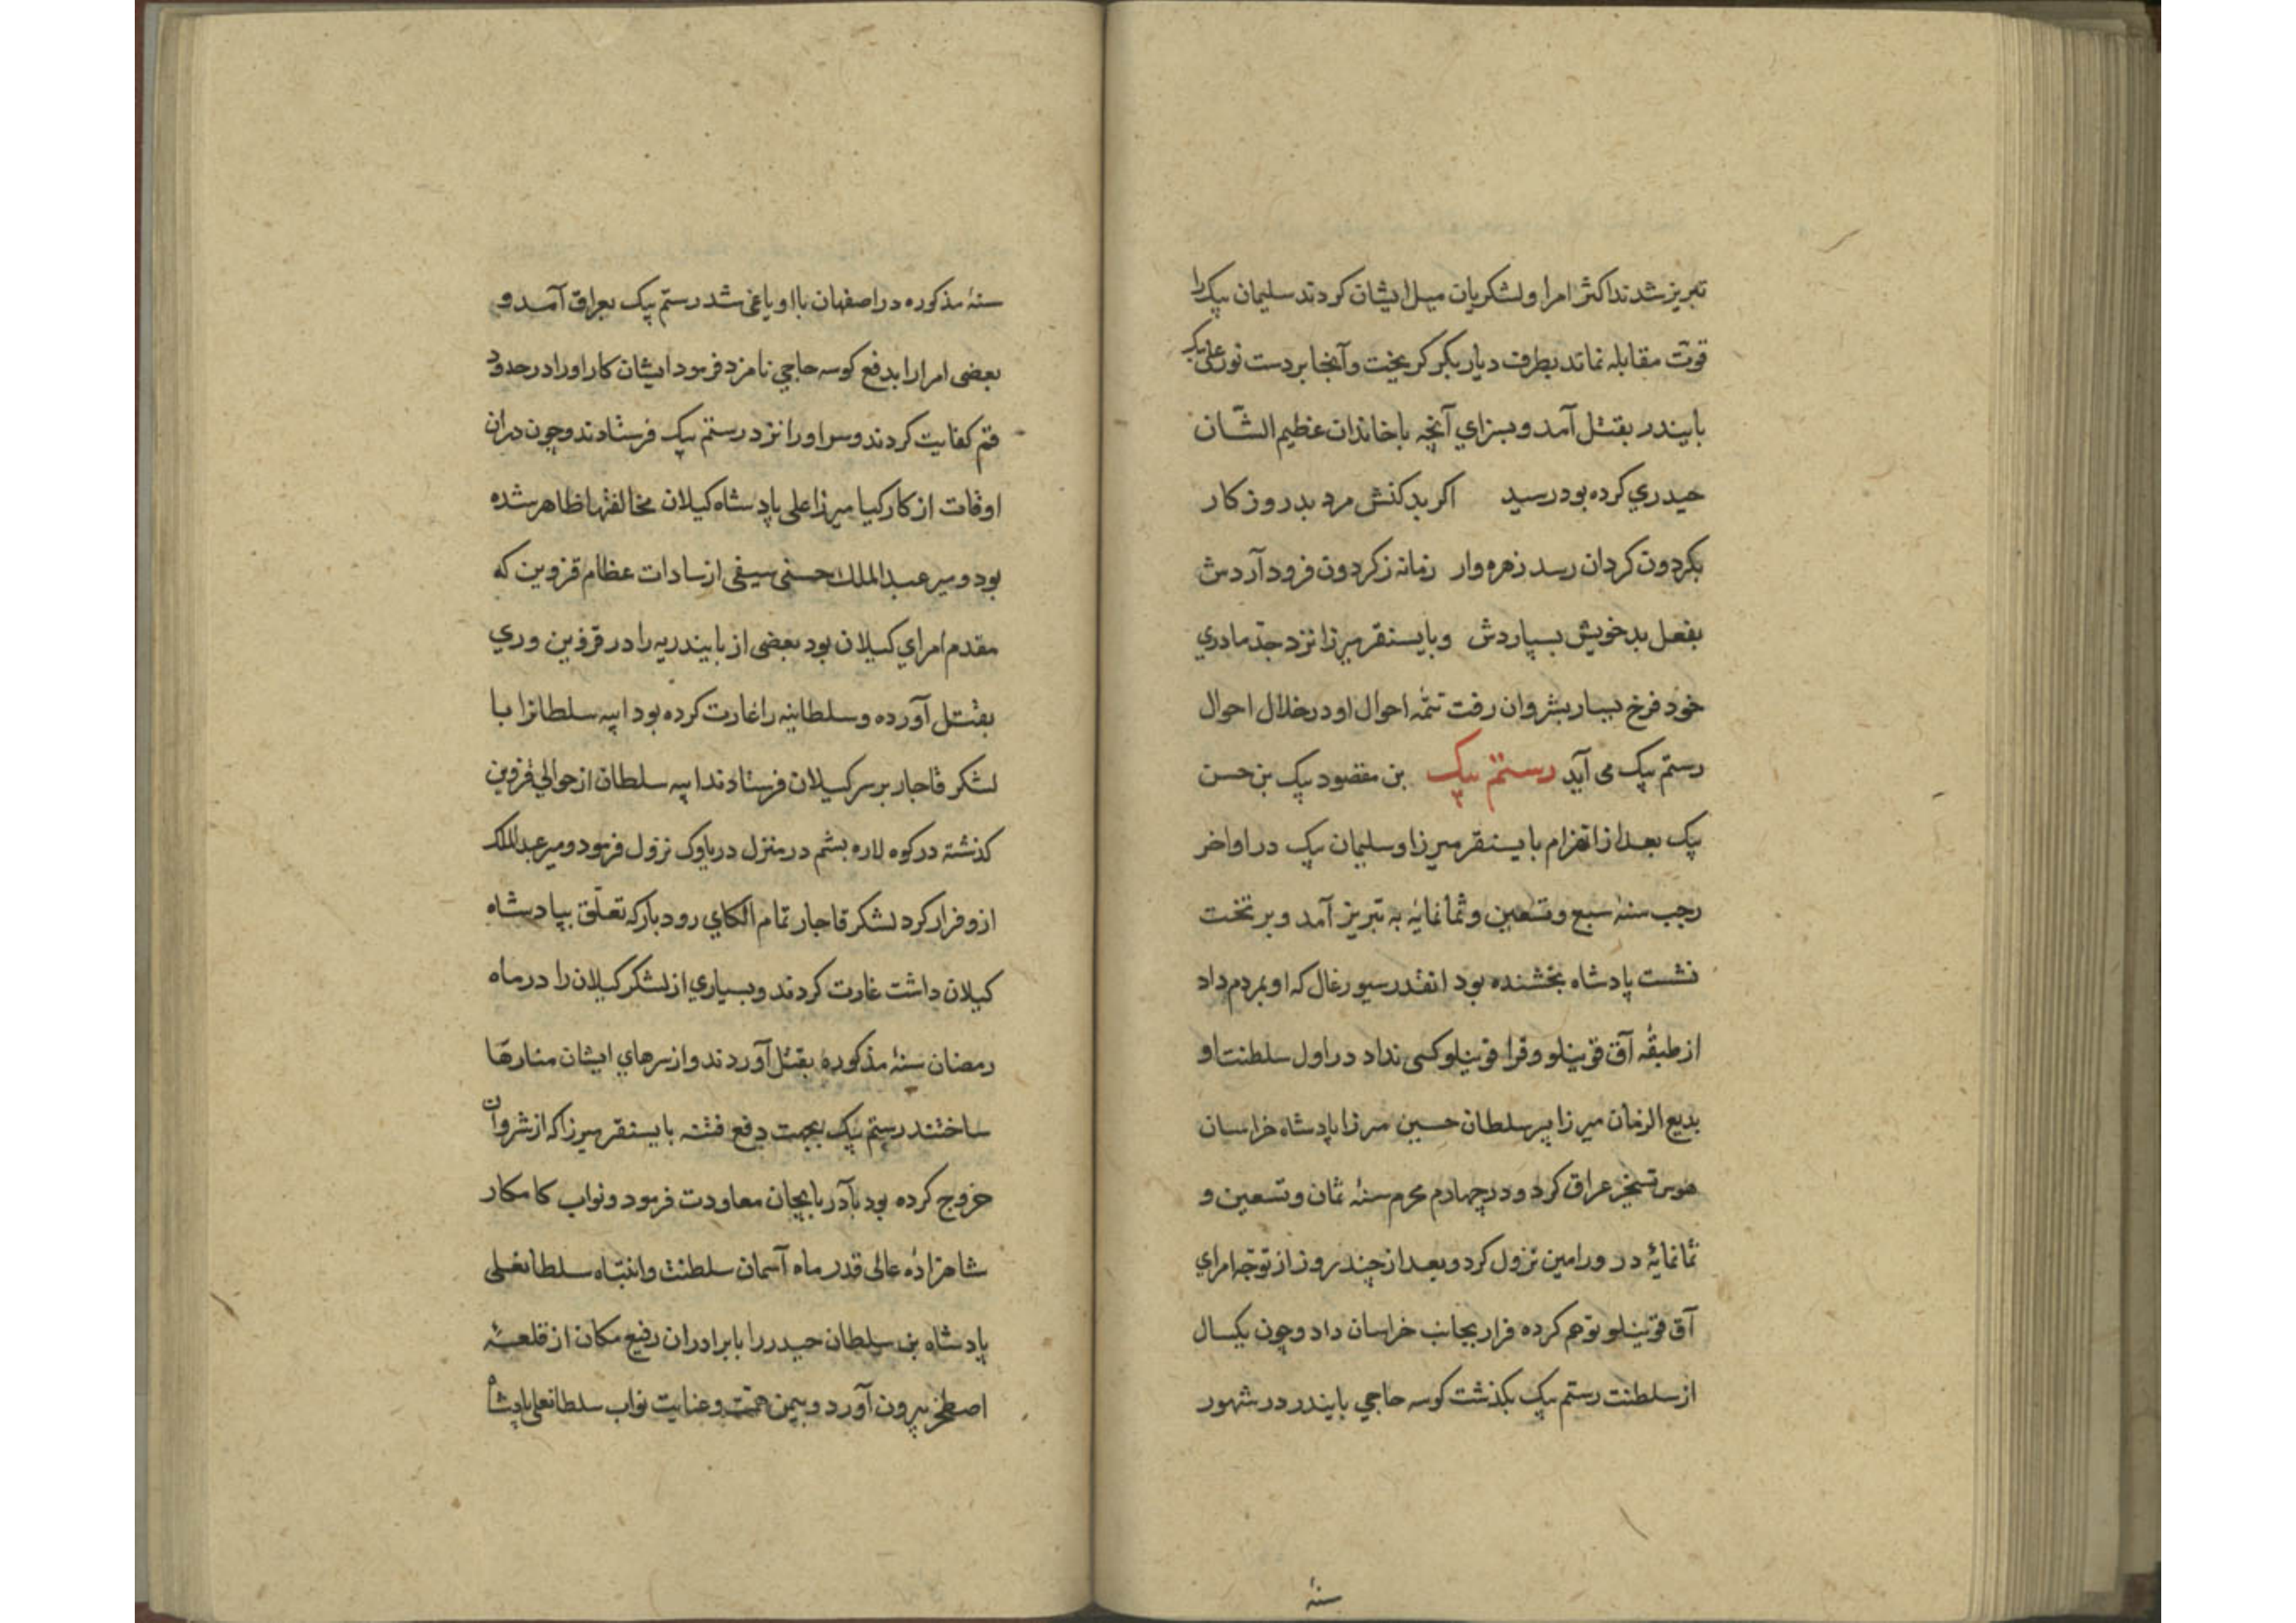 تبریز شدند اکثر امرا و لشکریان میل ایشان کردند سلیمان بیک را
قوت مقابله نماند بطرف دیار بکر کریخت و آنجا بر دست نور علی بیک
بایندر بقتل آمد و بسزاي آنچه با خاندان عظیم الشّان
حیدري کرده بود رسید اکر بد کنش مرد بد روزکار
بکردون کردان رسد زهره وار زمانه ز کردون فرود آردش
بفعل بد خویش بسپاردش و بایسنقر میرزا نزد جدّ مادري
خود فرخ یسار بشروان رفت تتمّه احوال او در خلال احوال
رستم بیک می آید رستم بیک بن مقصود بیک بن حسن
بیک بعد از انهزام بایسنقر میرزا و سلیمان بیک در اواخر
رجب سنهٔ سبع و تسعین و ثمانمایٔه به تبریز آمد و بر تخت
نشست پادشاه بخشنده بود انقدر سیورغال که او بمردم داد
از طبقٔه آق قوینلو و قرا قوینلو کسی نداد در اول سلطنت او
بدیع الزمان میرزا پسر سلطان حسین میرزا پادشاه خراسان
هوس تسخیر عراق کرد و در چهاردم محرم سنهٔ ثمان و تسعین و
ثمانمایٔه در ورامین نزول کرد و بعد از چند روز از توجّه امراي
آق قوینلو توهم کرده فرار بجانب خراسان داد و چون یکسال
از سلطنت رستم بیک بکذشت کوسه حاجي بایندر در شهور
سنهٔ
سنهٔ مذکوره در اصفهان با او یاغی شد رستم بیک بعراق آمد و
بعضی امرا را بدفع کوسه حاجي نامزد فرمود ایشان کار او را در حدود
قم کفایت کردند و سر او را نزد رستم بیک فرستادند و چون دران
اوقات از کارکیا میرزا علی پادشاه کیلان مخالفتها ظاهر شده
بود و میر عبد الملك حسنی سیفی از سادات عظام قزوین که
مقدم امراي کیلان بود بعضی از بایندریه را در قزوین و ري
بقتل آورده و سلطانیه را غارت کرده بود ایبه سلطانرا با
لشکر قاجار بر سر کیلان فرستادند ایبه سلطان از حوالي قزوین
کذشته در کوه لاره بشم در منزل درباوک نزول فرمود و میر عبد الملک
ازو فرار کرد لشکر قاجار تمام الکاي رودبار که تعلّق بپادشاه
کیلان داشت غارت کردند و بسیاري از لشکر کیلان را در ماه
رمضان سنهٔ مذکوره بقتل آوردند و از سرهاي ایشان منارها
ساختند رستم بیک بجهت دفع فتنه بایسنقر میرزا که از شروان
خروج کرده بود بآذربایجان معاودت فرمود و نواب کامکار
شاهزادهٔ عالی قدر ماه آسمان سلطنت و انتباه سلطانعلی
پادشاه بن سلطان حیدر را با برادران رفیع مکان از قلعهٔ
اصطخر بیرون آورد و بیمن همّت و عنایت نواب سلطانعلی پادشاه